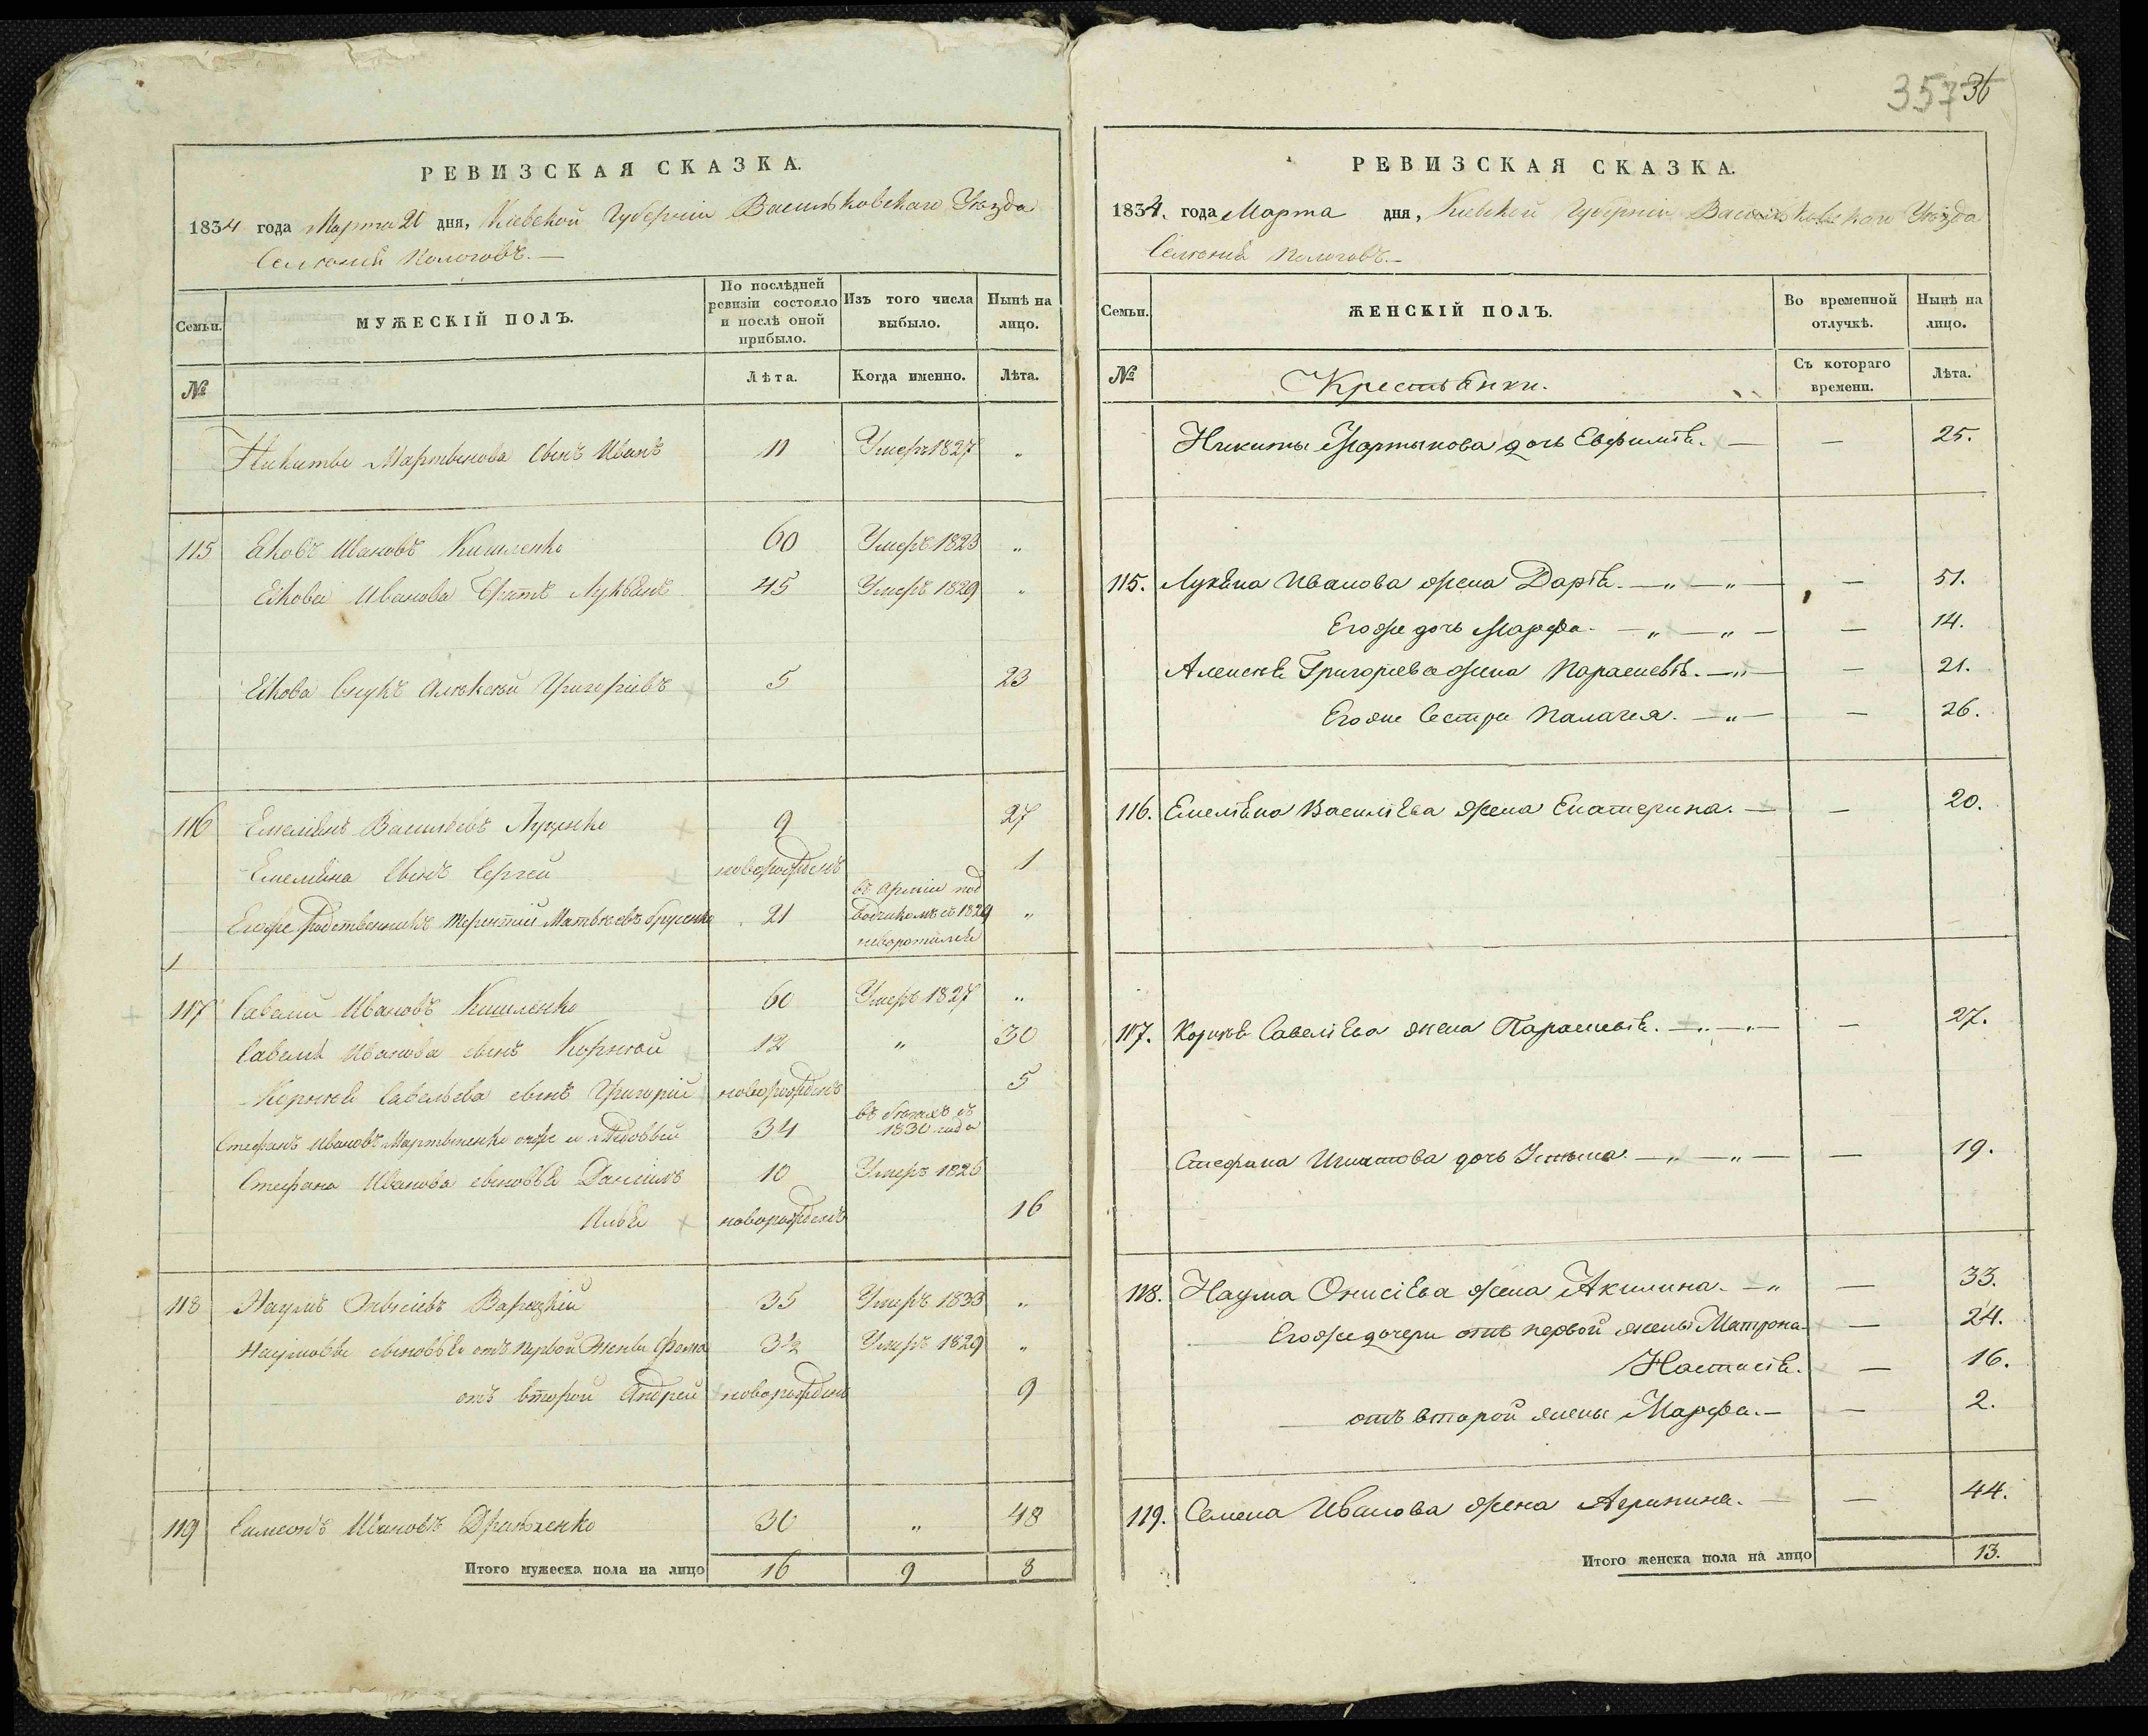 357 36
РЕВИЗСКАЯ СКАЗКА.
1834 года Марта 21 дня, Кіевской Губерніи Васильковскаго Уѣзда
Селенія Пологовъ.—
Семьи.
МУЖЕСКІЙ ПОЛЪ.
По послѣдней ревизіи состояло и послѣ оной прибыло.
Изъ того числа выбыло.
Нынѣ на лицо.
№
Лѣта.
Когда именно.
Лѣта.
Никиты Мартынова сынъ Иванъ 11 Умеръ 1827 „
115 Яковъ Ивановъ Кишленко 60 Умеръ 1823 „
Якова Иванова братъ Лукьянъ 45 Умеръ 1829 „
Якова внукъ Алексѣй Григоріевъ 5 23
116 Емельянъ Васильевъ 9 27
Емельяна сынъ Сергей новорожденъ 1
Егоже родственникъ Терентій Матвѣевъ 21 въ арміи под
водчикомъ съ 1829 „
117 Савелій Ивановъ Кишленко 60 Умеръ 1827 „
Савелія Иванова сынъ Корнѣй 12 „ 30
Корнѣя Савельева сынъ Григорій новорожденъ 5
Стефанъ Ивановъ Мартыненко онже и 34 въ бѣгахъ съ
1830 года
Стефана Иванова сыновья Даніилъ 10 Умеръ 1826
Илья новорожденъ 16
118 Наумъ 35 Умеръ 1833 „
Наумовы сыновья отъ первой жены Фома 3½ Умеръ 1829 „
отъ второй Андрей новорожденъ 9
119 Симеонъ Ивановъ 30 „ 48
Итого мужеска пола на лицо 16 9 8
РЕВИЗСКАЯ СКАЗКА.
1834. года Марта дня, Кіевской Губерніи Васильковскаго Уѣзда
Селенія Пологовъ.—
Семьи.
ЖЕНСКІЙ ПОЛЪ.
Во временной отлучкѣ.
Нынѣ на лицо.
№
Крестьянки.
Съ котораго времени.
Лѣта.
Никиты Мартынова дочь Евфимія. — — 25.
115. Лукяна Иванова жена Дарія. —„—„— — 51.
Егоже дочь Марфа. —„—„— — 14.
Алексѣя Григорієва жена Параскевія. —„— — 21.
Егоже сестра Палагея. —„— — 26.
116. Емеляна Василіева жена Екатерина. — — 20.
117. Корнѣя Савеліева жена Параскевія. —„—„— — 27.
Стефана дочь Ульяна. —„—„— — 19.
118. Наума Онисіева жена Акилина. —„ — 33.
Егоже дочери отъ первой жены Матрона — 24.
Настасія. — 16.
отъ второй жены Марфа.— — 2.
119. Семена Иванова жена Агрипина. — — 44.
Итого женска пола на лицо 13.